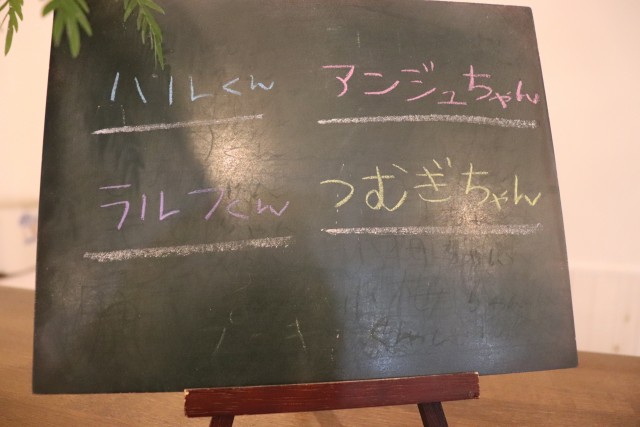 ハルくん アンジュちゃん
ラルフくん つむぎちゃん